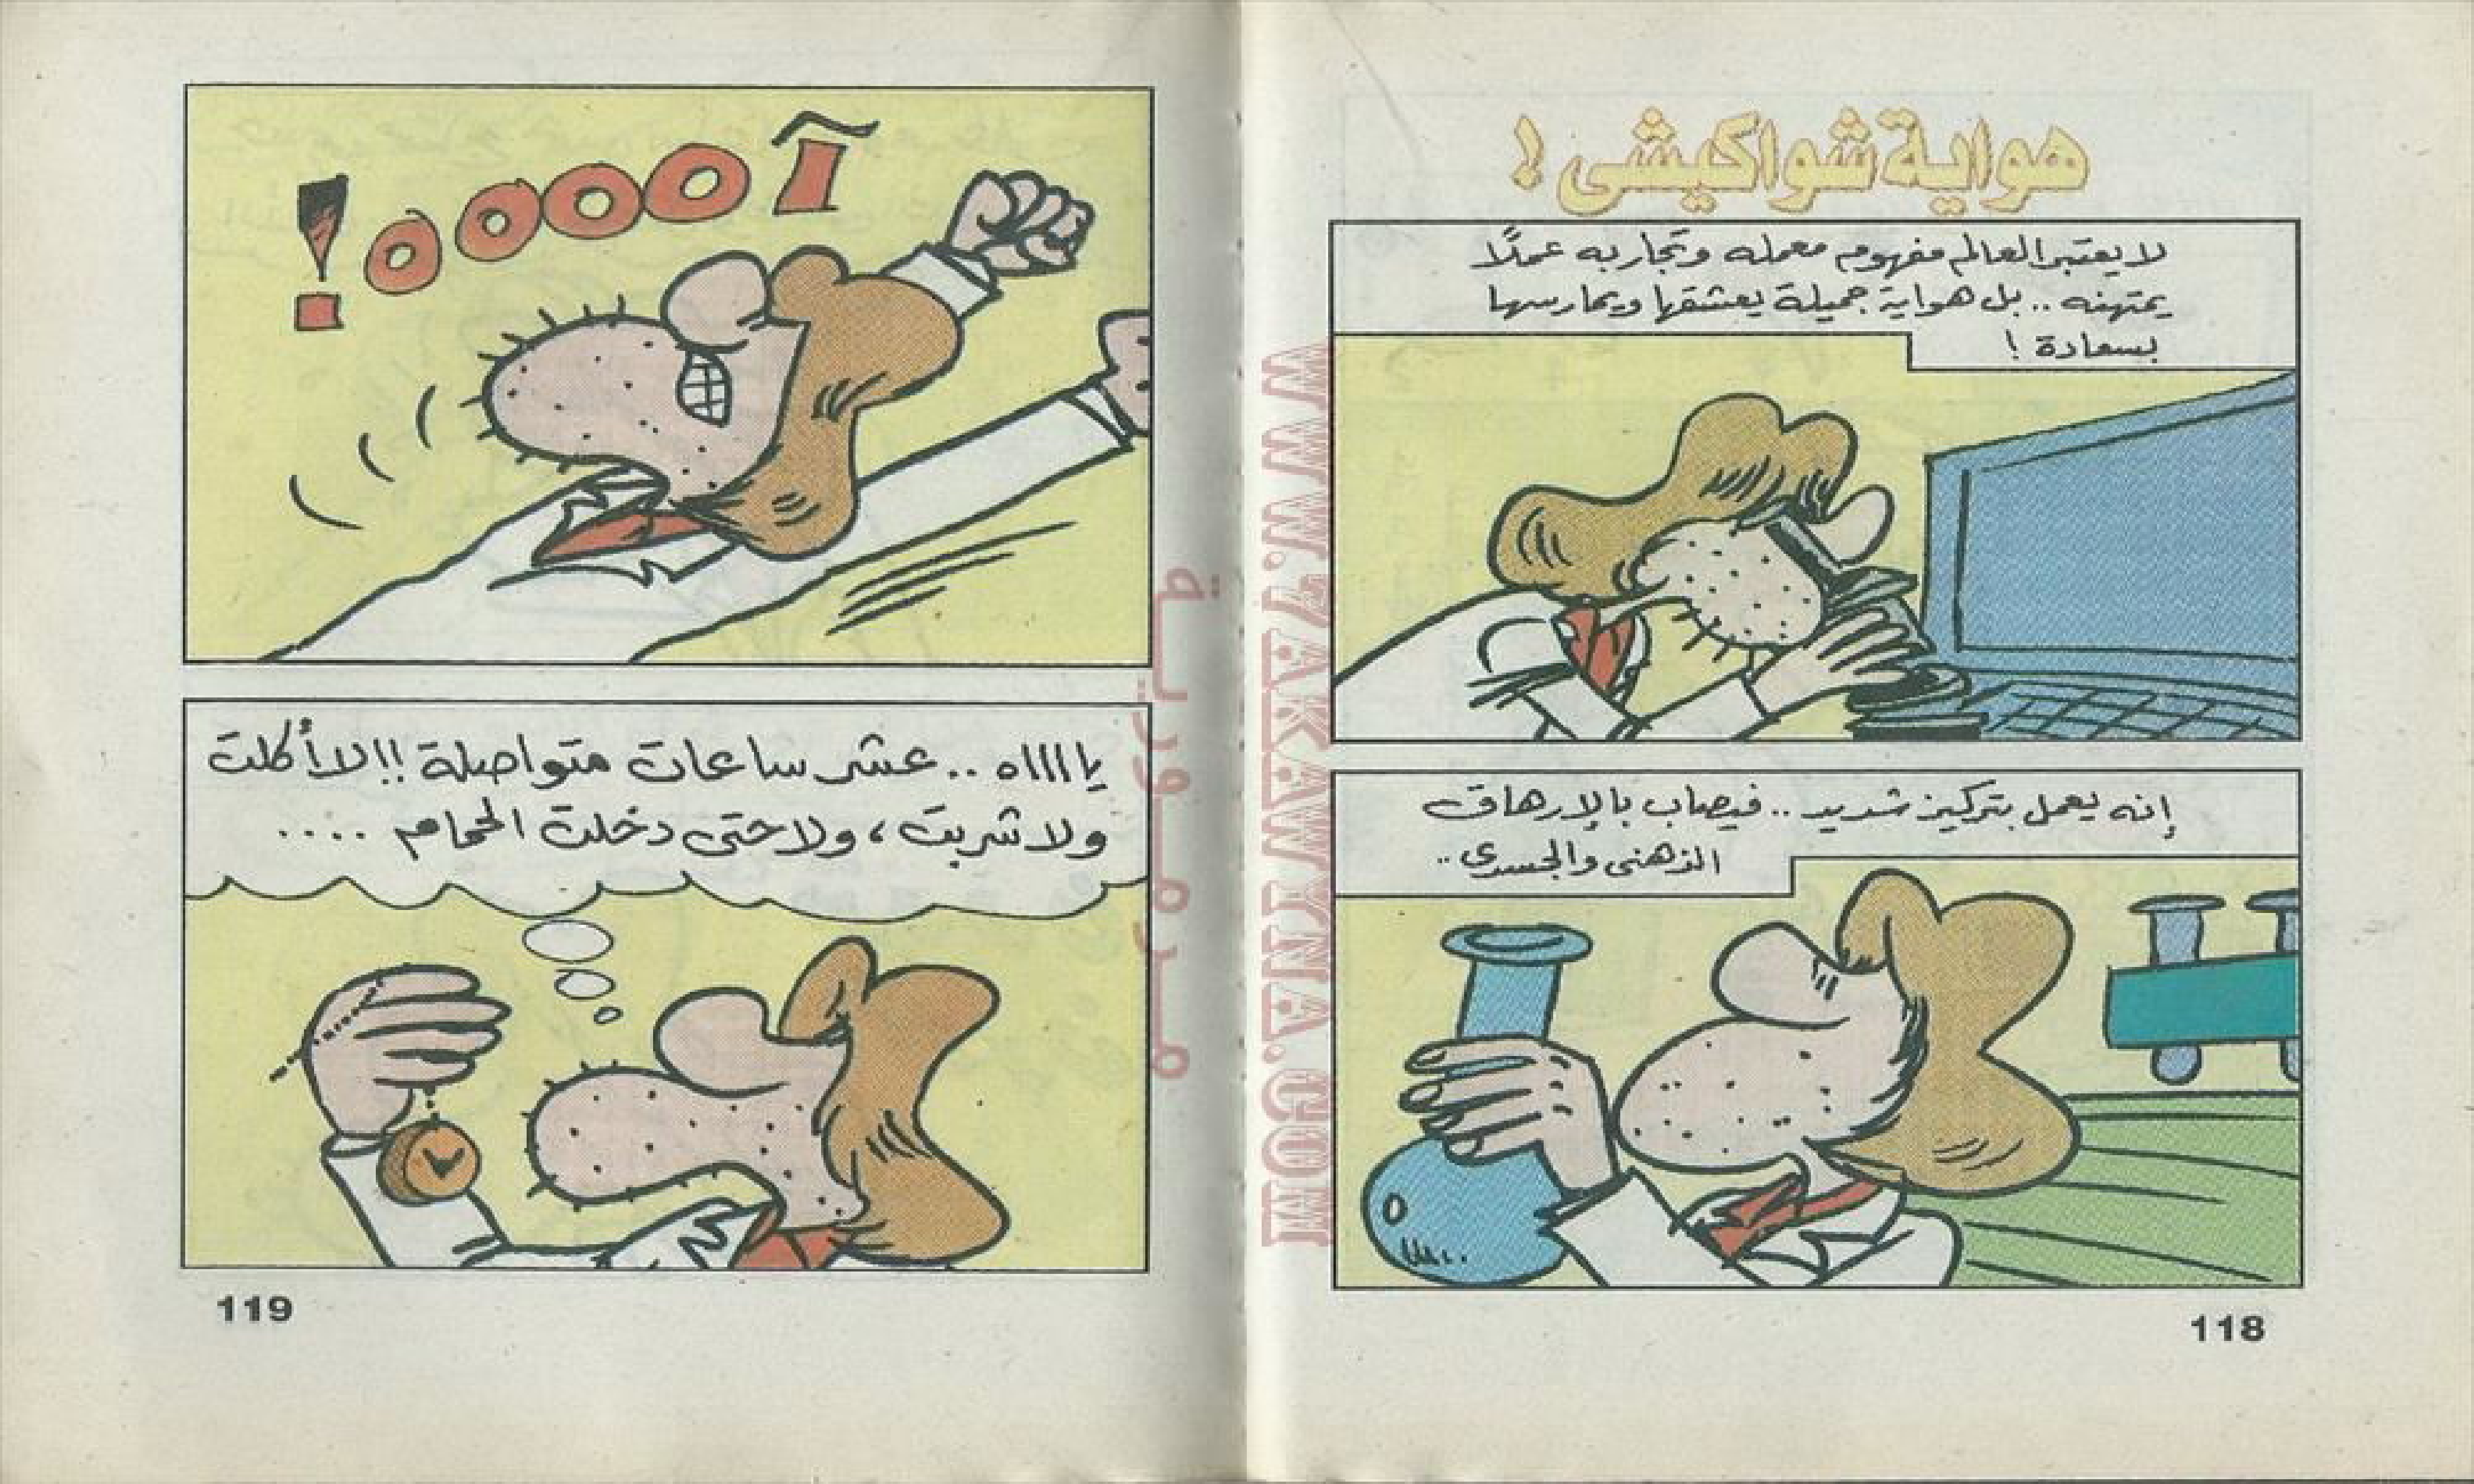 هواية شواكيشى !
لا يعتبر العالم مفهوم معمله وتجاربه عملًا
يمتهنه .. بل هواية جميلة يعشقها ويمارسها
بسعادة !
إنه يعمل بتركيز شديد .. فيصاب بالإرهاق
الذهنى والجسدى ..
118
آه ه ه ه !
يا اااه .. عشر ساعات متواصلة !! لا أكلت
ولا شربت ، ولا حتى دخلت الحمام ....
119
WWW.7AKAWINA.COM
مرمورية